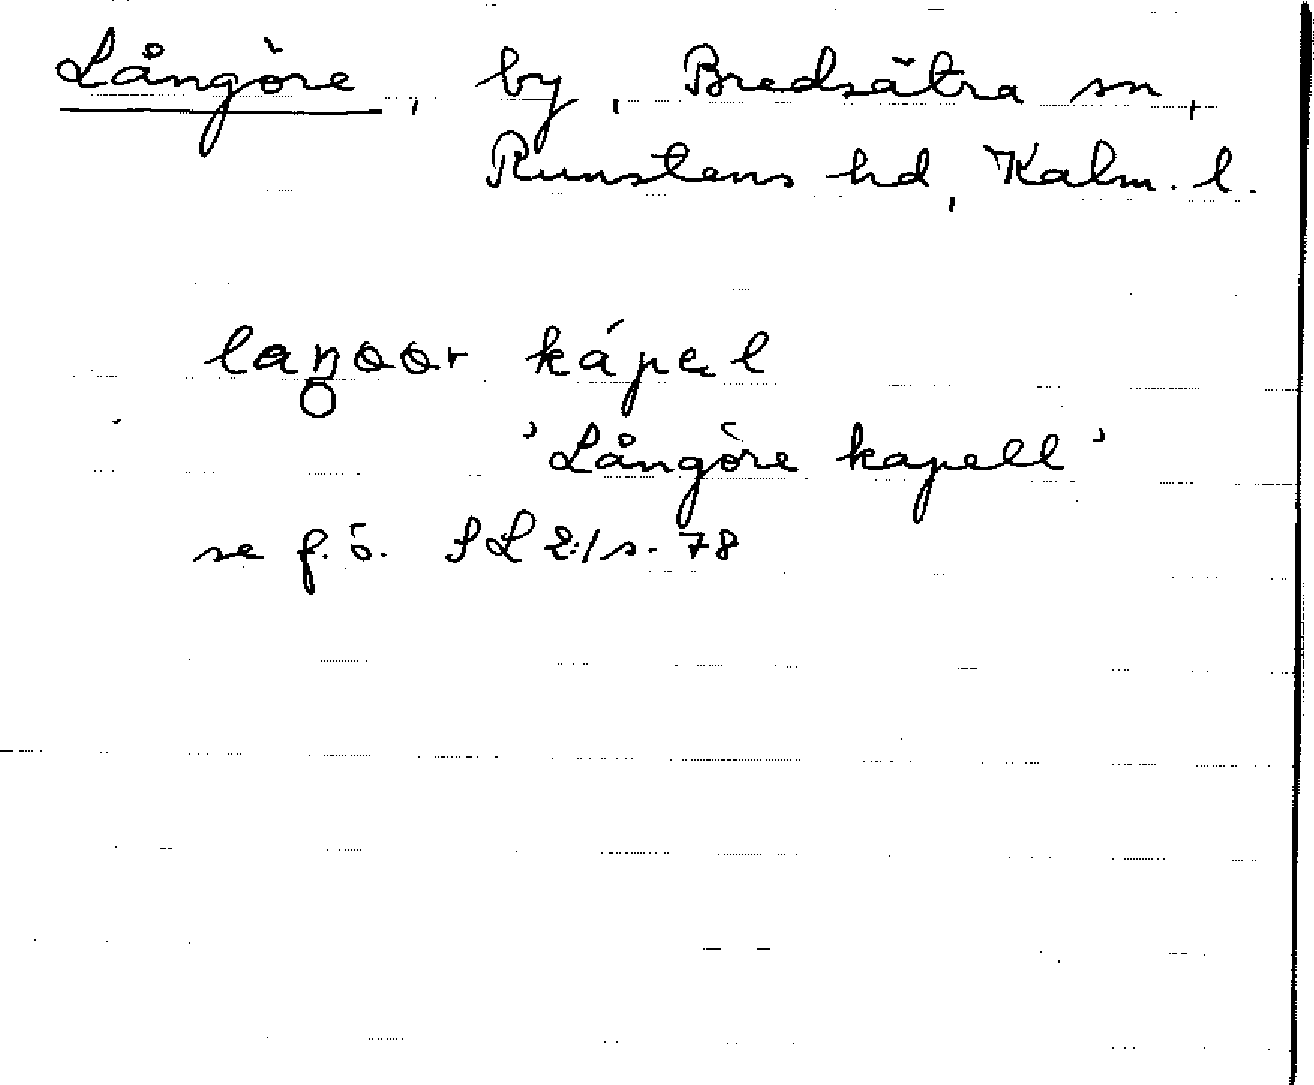 Långöre, by, Bredsätra sn,
Runstens hd, Kalm. l.
kápel
'Långöre kapell'
se f.ö. SL 2:1 s. 78